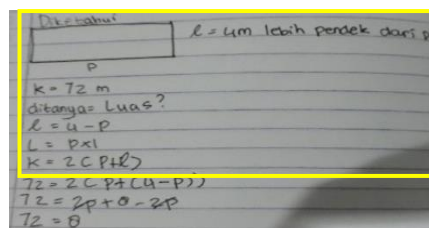 Diketahui
l = 4m lebih pendek dari p
p
k = 72 m
ditanya = Luas?
l = 4 - p
L = p x l
k = 2 ( p + l )
72 = 2 ( p + (4 - p) )
72 = 2p + 8 - 2p
72 = 8